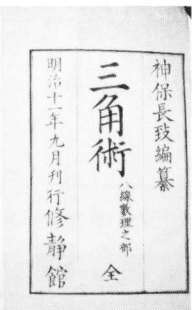 神保長致編纂
三角術 八線數理之部 全
明治十一年九月刊行 修静館